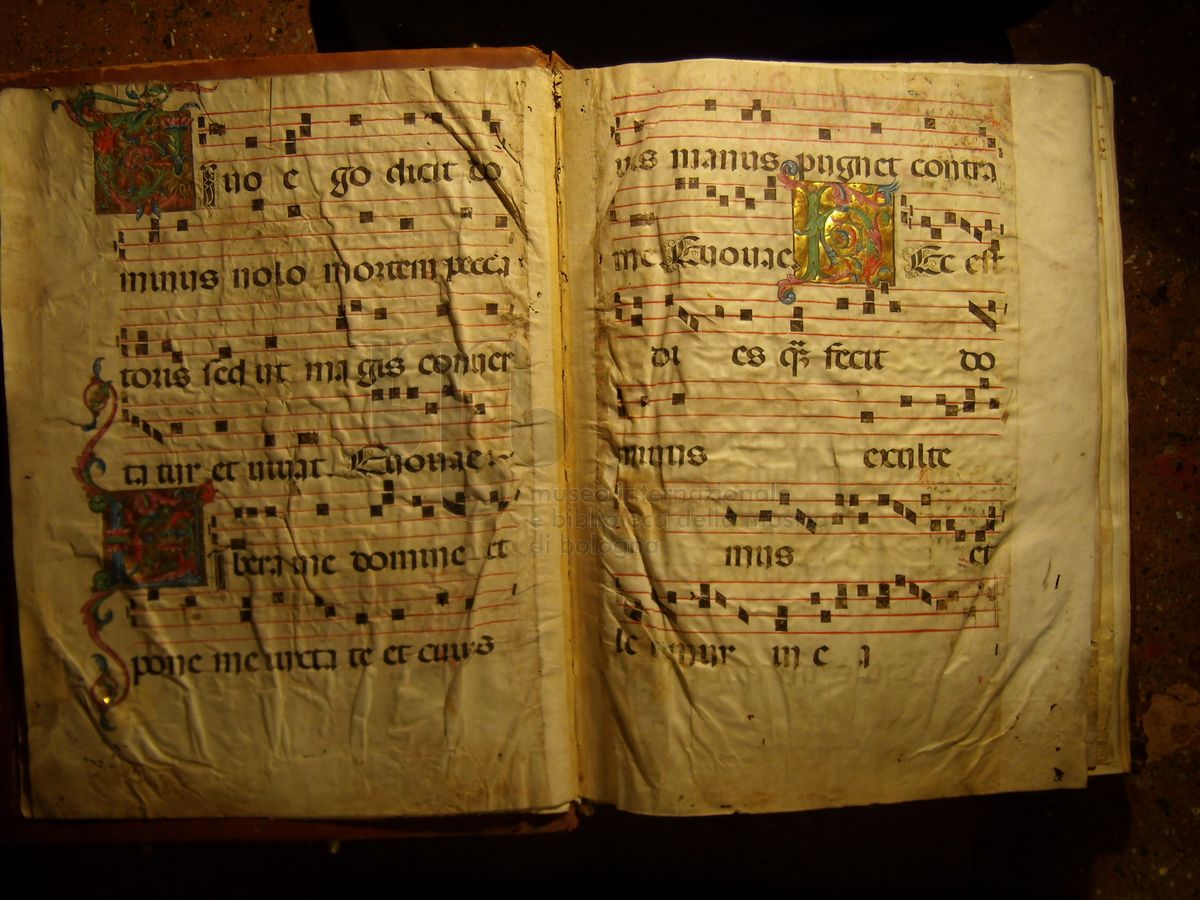 Vivo ego dicit do
minus nolo mortem pecca
toris sed ut magis conuer
tatur et uiuat Euouae
Libera me domine et
pone me iuxta te et cuius
uis manus pugnet contra
me Euouae Hec est
di es q̃ fecit do
minus exulte
mus et
le temur in e a
museo internazionale
e biblioteca della musica
di bologna